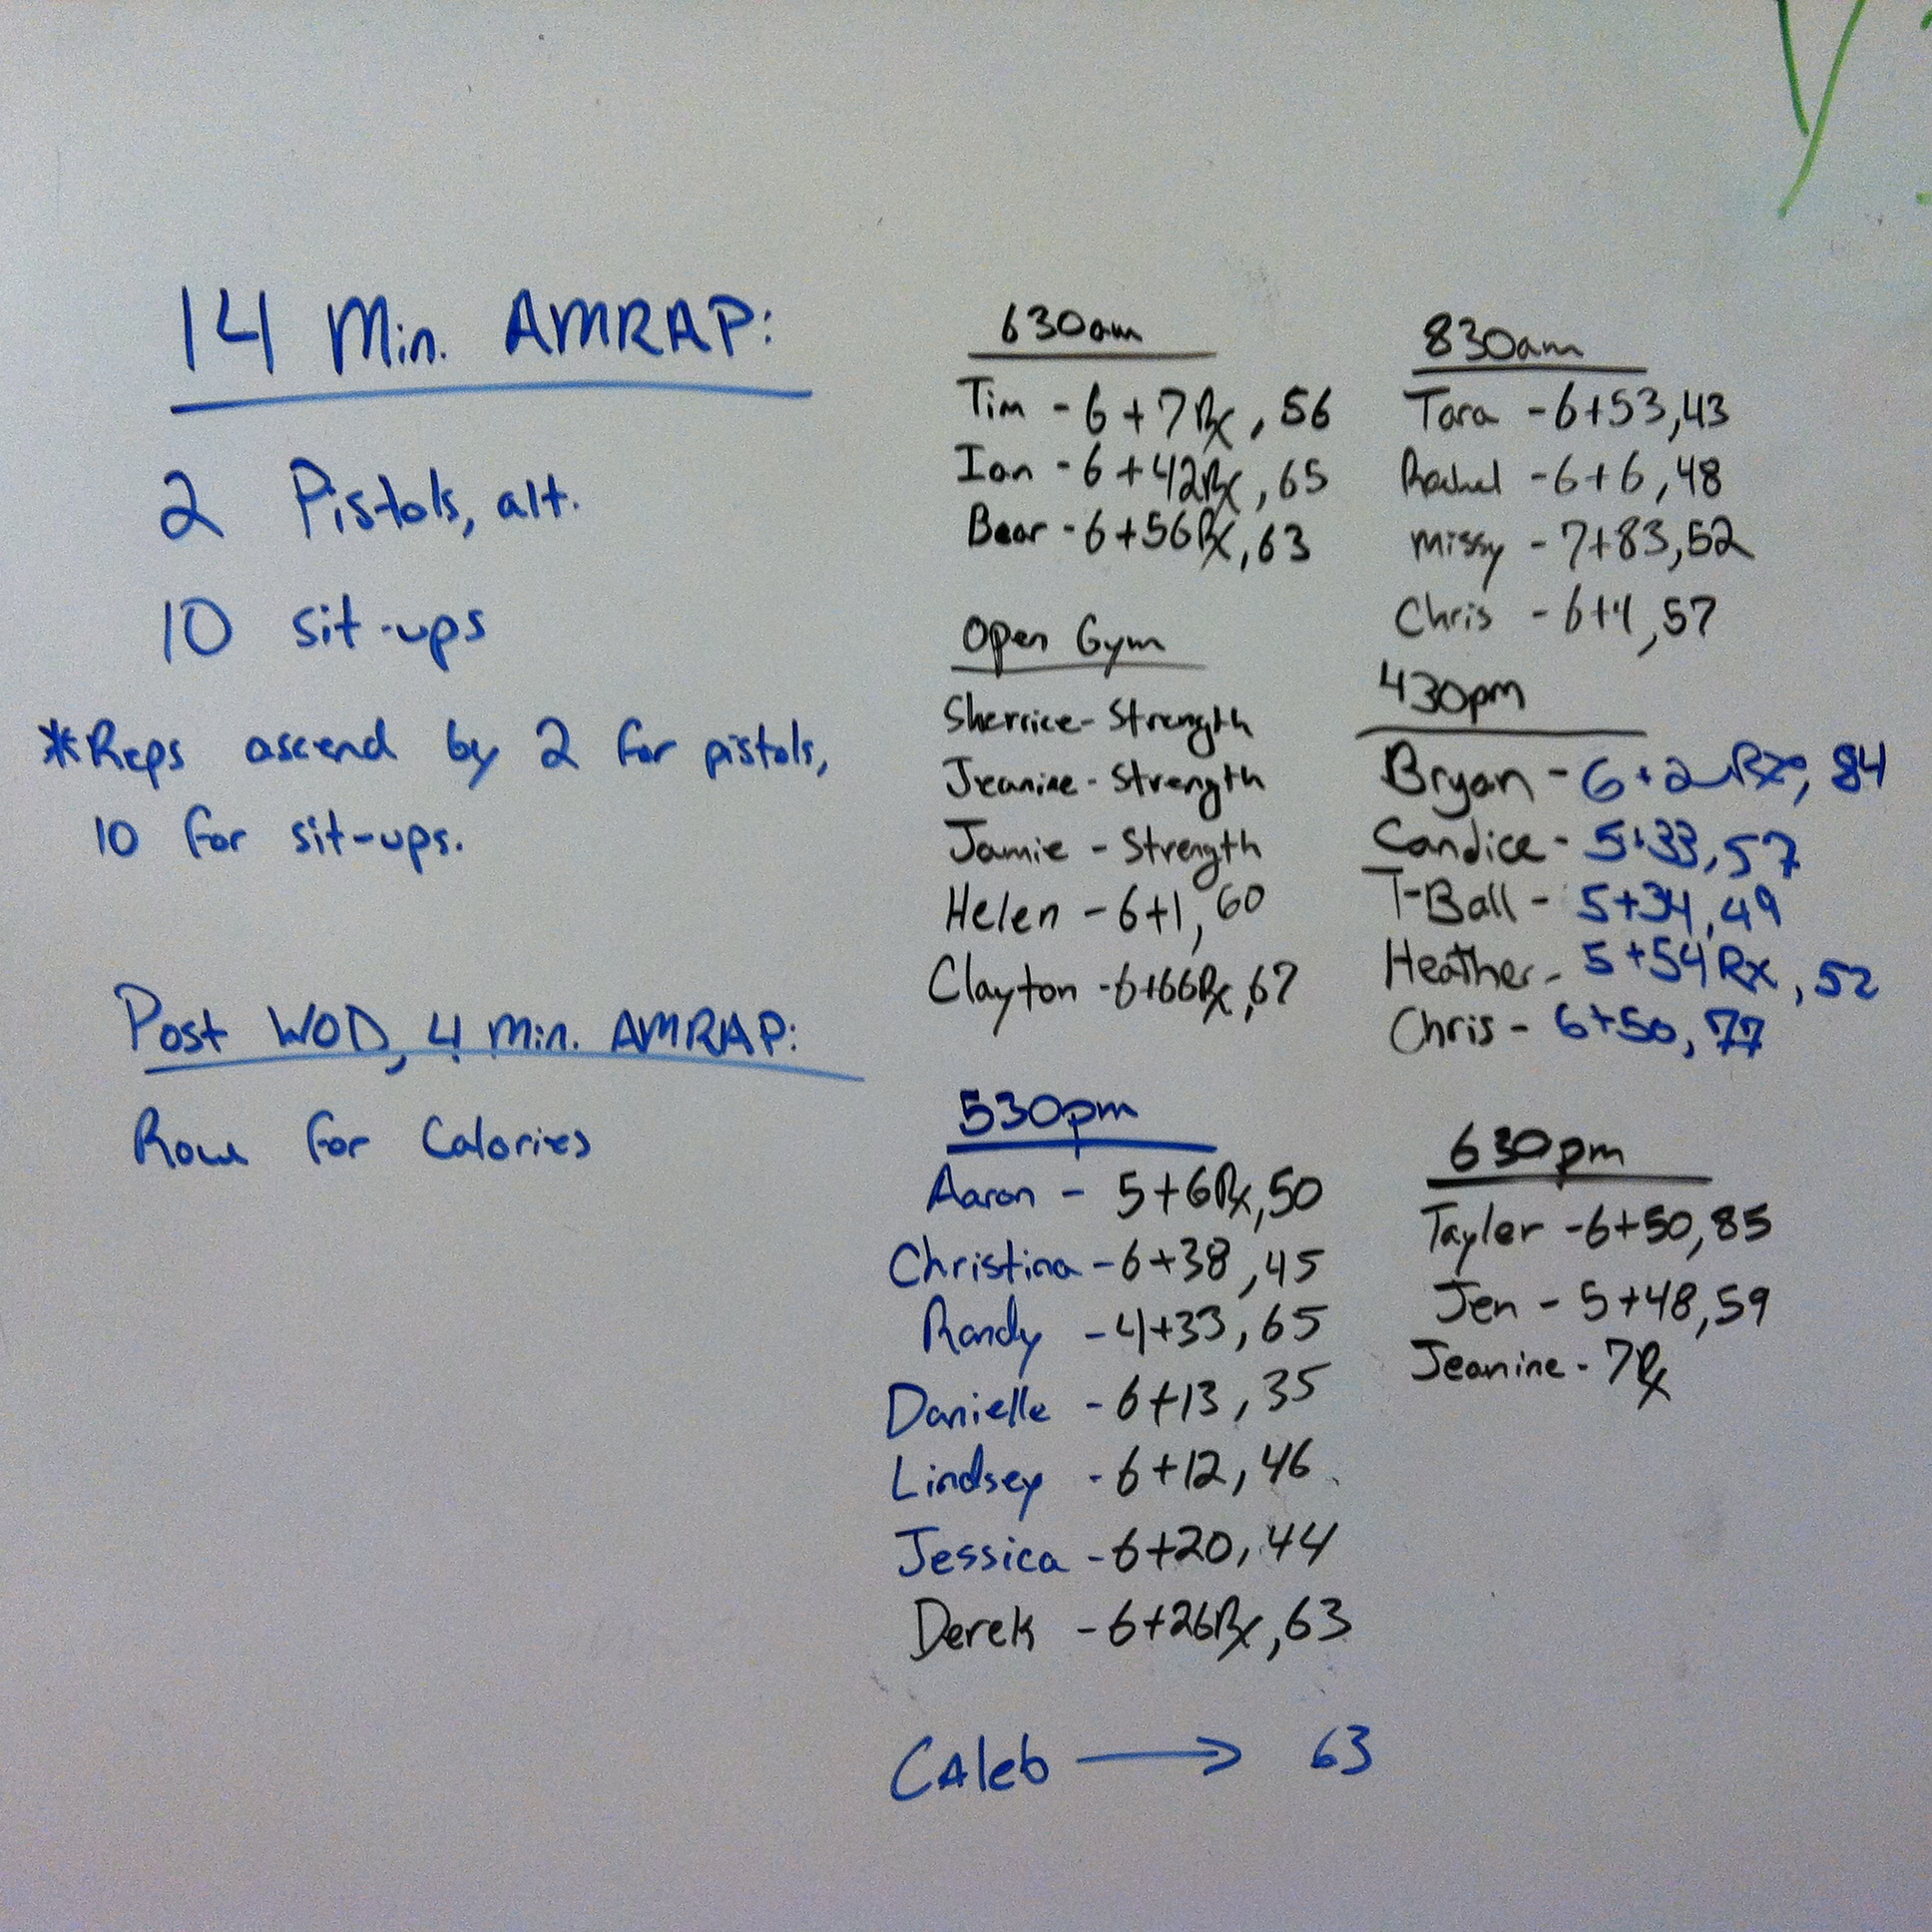 14 Min. AMRAP:
2 Pistols, alt.
10 sit-ups
*Reps ascend by 2 for pistols,
10 for sit-ups.
Post WOD, 4 min. AMRAP:
Row for Calories
630am
Tim - 6+7Rx, 56
Ian - 6+42Rx, 65
Bear - 6+56Rx, 63
Open Gym
Sherrice - Strength
Jeanine - Strength
Jamie - Strength
Helen - 6+1, 60
Clayton - 6+66Rx, 67
830am
Tara - 6+53, 43
Rachel - 6+6, 48
Missy - 7+83, 52
Chris - 6+4, 57
430pm
Bryan - 6+2 Rx, 84
Candice - 5+33, 57
T-Ball - 5+34, 49
Heather - 5+54 Rx, 52
Chris - 6+50, 77
530pm
Aaron - 5+6Rx, 50
Christina - 6+38, 45
Randy - 4+33, 65
Danielle - 6+13, 35
Lindsey - 6+12, 46
Jessica - 6+20, 44
Derek - 6+26Rx, 63
Caleb → 63
630pm
Tayler - 6+50, 85
Jen - 5+48, 59
Jeanine - 7Rx